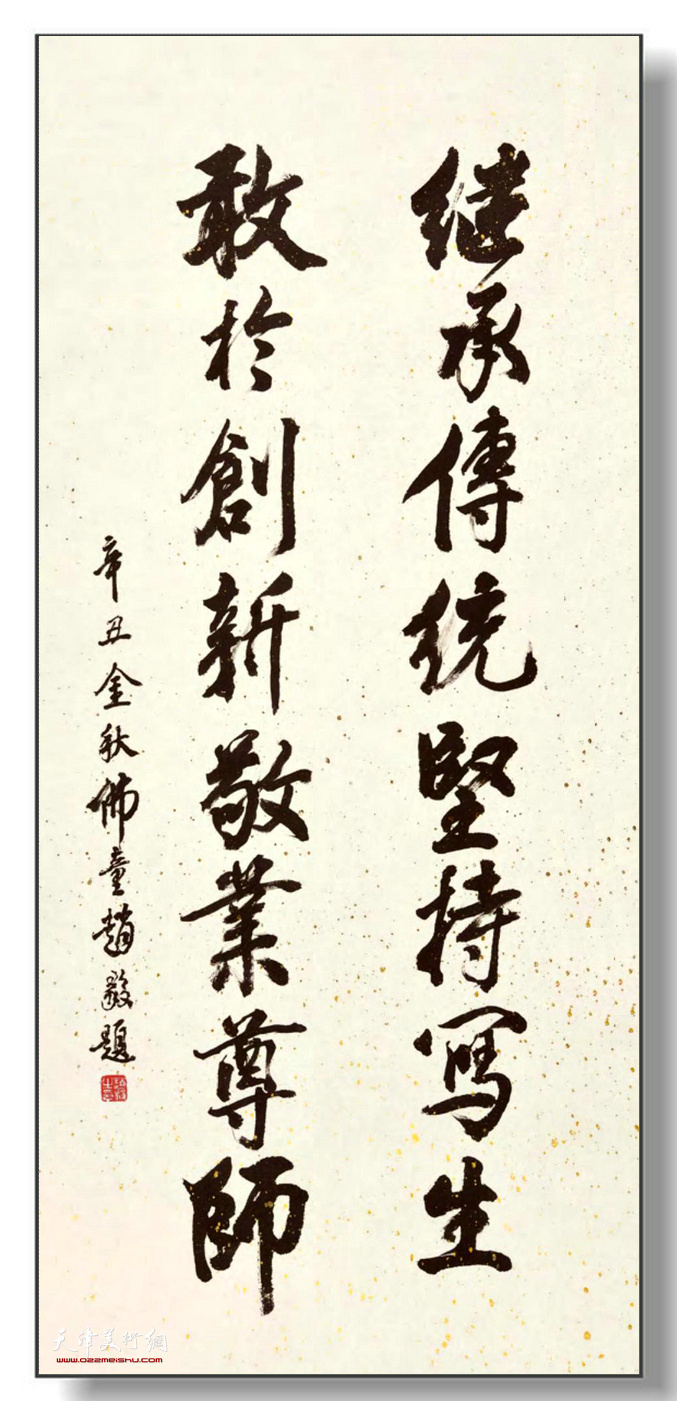 继承傳統堅持寫生
敢於創新敬業尊師
辛丑金秋佛童趙毅題
天津美术网
www.022meishu.com